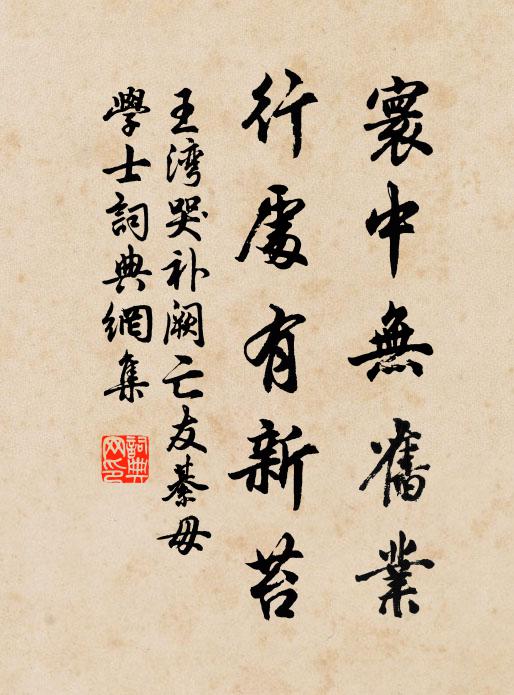 寰中無舊業
行處有新苔
王湾哭补阙亡友綦毋
學士詞典網集
詞典
网印